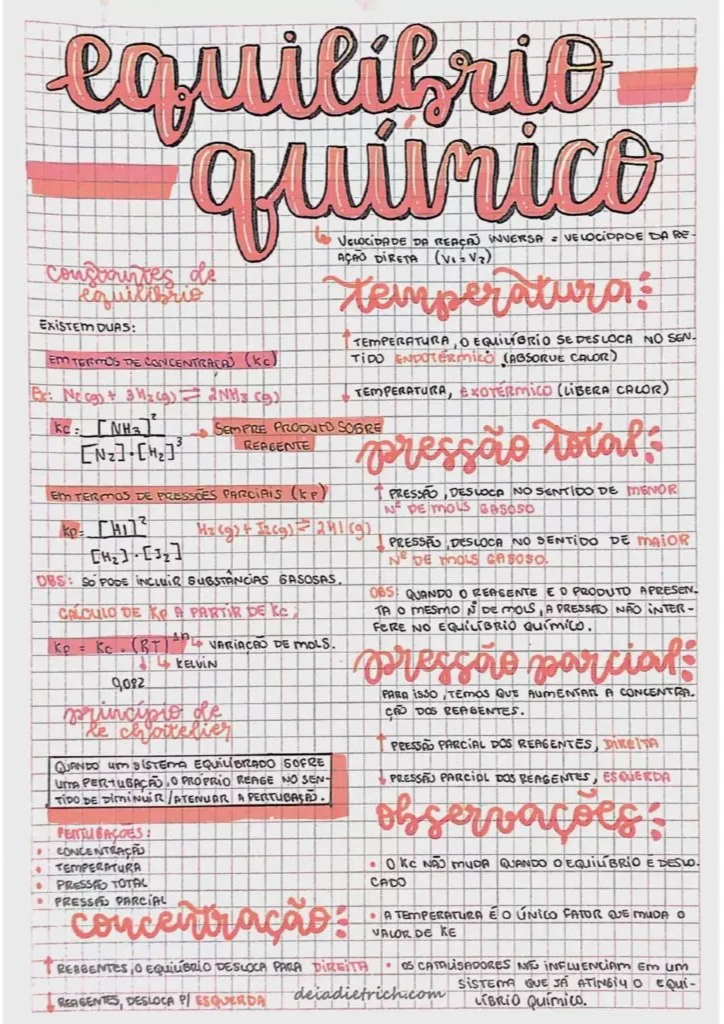 equilíbrio
químico
↳ VELOCIDADE DA REAÇÃO INVERSA = VELOCIDADE DA RE-
AÇÃO DIRETA (V1 = V2)
constantes de
equilíbrio
EXISTEM DUAS:
EM TERMOS DE CONCENTRAÇÃO (Kc)
Ex: N2(g) + 3H2(g) ⇌ 2NH3 (g)
Kc = [NH3]²
[N2]·[H2]³
→ SEMPRE PRODUTO SOBRE
REAGENTE
EM TERMOS DE PRESSÕES PARCIAIS (Kp)
Kp = [HI]²
[H2]·[I2]
H2(g) + I2(g) ⇌ 2HI(g)
OBS: SÓ PODE INCLUIR SUBSTÂNCIAS GASOSAS.
CÁLCULO DE Kp A PARTIR DE Kc:
Kp = Kc . (RT)^Δn ↳ VARIAÇÃO DE MOLS.
↓ ↳ KELVIN
0,082
princípio de
le chatelier
QUANDO UM SISTEMA EQUILIBRADO SOFRE
UMA PERTUBAÇÃO, O PRÓPRIO REAGE NO SEN-
TIDO DE DIMINUIR/ATENUAR A PERTUBAÇÃO.
PERTUBAÇÕES:
• CONCENTRAÇÃO
• TEMPERATURA
• PRESSÃO TOTAL
• PRESSÃO PARCIAL
concentração:
↑ REAGENTES, O EQUILÍBRIO DESLOCA PARA DIREITA
↓ REAGENTES, DESLOCA P/ ESQUERDA
temperatura:
↑ TEMPERATURA, O EQUILÍBRIO SE DESLOCA NO SEN-
TIDO ENDOTÉRMICO (ABSORVE CALOR)
↓ TEMPERATURA, EXOTÉRMICO (LIBERA CALOR)
pressão total:
↑ PRESSÃO, DESLOCA NO SENTIDO DE MENOR
Nº DE MOLS GASOSO
↓ PRESSÃO, DESLOCA NO SENTIDO DE MAIOR
Nº DE MOLS GASOSO.
OBS: QUANDO O REAGENTE E O PRODUTO APRESEN-
TA O MESMO Nº DE MOLS, A PRESSÃO NÃO INTER-
FERE NO EQUILÍBRIO QUÍMICO.
pressão parcial:
PARA ISSO, TEMOS QUE AUMENTAR A CONCENTRA-
ÇÃO DOS REAGENTES.
↑ PRESSÃO PARCIAL DOS REAGENTES, DIREITA
↓ PRESSÃO PARCIAL DOS REAGENTES, ESQUERDA
observações:
• O Kc NÃO MUDA QUANDO O EQUILÍBRIO É DESLO-
CADO
• A TEMPERATURA É O ÚNICO FATOR QUE MUDA O
VALOR DE KE
• OS CATALISADORES NÃO INFLUENCIAM EM UM
SISTEMA QUE JÁ ATINGIU O EQUI-
LÍBRIO QUÍMICO.
deiadietrich.com